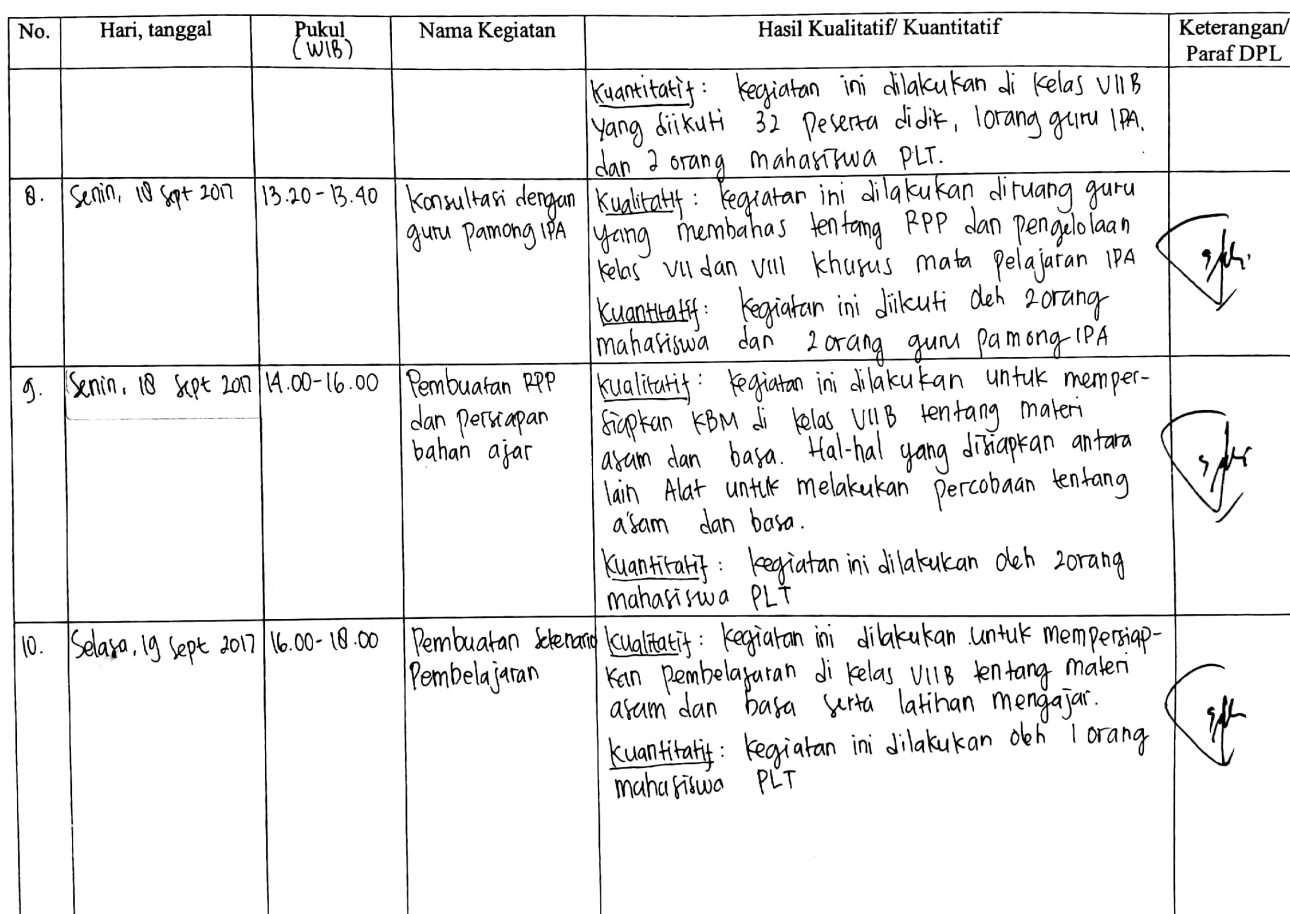 No. Hari, tanggal Pukul Nama Kegiatan Hasil Kualitatif/ Kuantitatif Keterangan/
(WIB) Paraf DPL
Kuantitatif : kegiatan ini dilakukan di kelas VII B
yang diikuti 32 peserta didik, 1 orang guru IPA,
dan 2 orang mahasiswa PLT.
8. Senin, 18 Sept 2017 13.20 - 13.40 Konsultasi dengan
guru pamong IPA
Kualitatif : kegiatan ini dilakukan diruang guru
yang membahas tentang RPP dan pengelolaan
kelas VII dan VIII khusus mata pelajaran IPA
Kuantitatif : kegiatan ini diikuti oleh 2 orang
mahasiswa dan 2 orang guru pamong IPA
9. Senin, 18 Sept 2017 14.00 - 16.00 Pembuatan RPP
dan persiapan
bahan ajar
Kualitatif : kegiatan ini dilakukan untuk memper-
siapkan KBM di kelas VII B tentang materi
asam dan basa. Hal-hal yang disiapkan antara
lain Alat untuk melakukan percobaan tentang
asam dan basa.
Kuantitatif : kegiatan ini dilakukan oleh 2 orang
mahasiswa PLT
10. Selasa, 19 Sept 2017 16.00 - 18.00 Pembuatan Sekenario
Pembelajaran
Kualitatif : kegiatan ini dilakukan untuk mempersiap-
kan pembelajaran di kelas VII B tentang materi
asam dan basa serta latihan mengajar.
Kuantitatif : kegiatan ini dilakukan oleh 1 orang
mahasiswa PLT